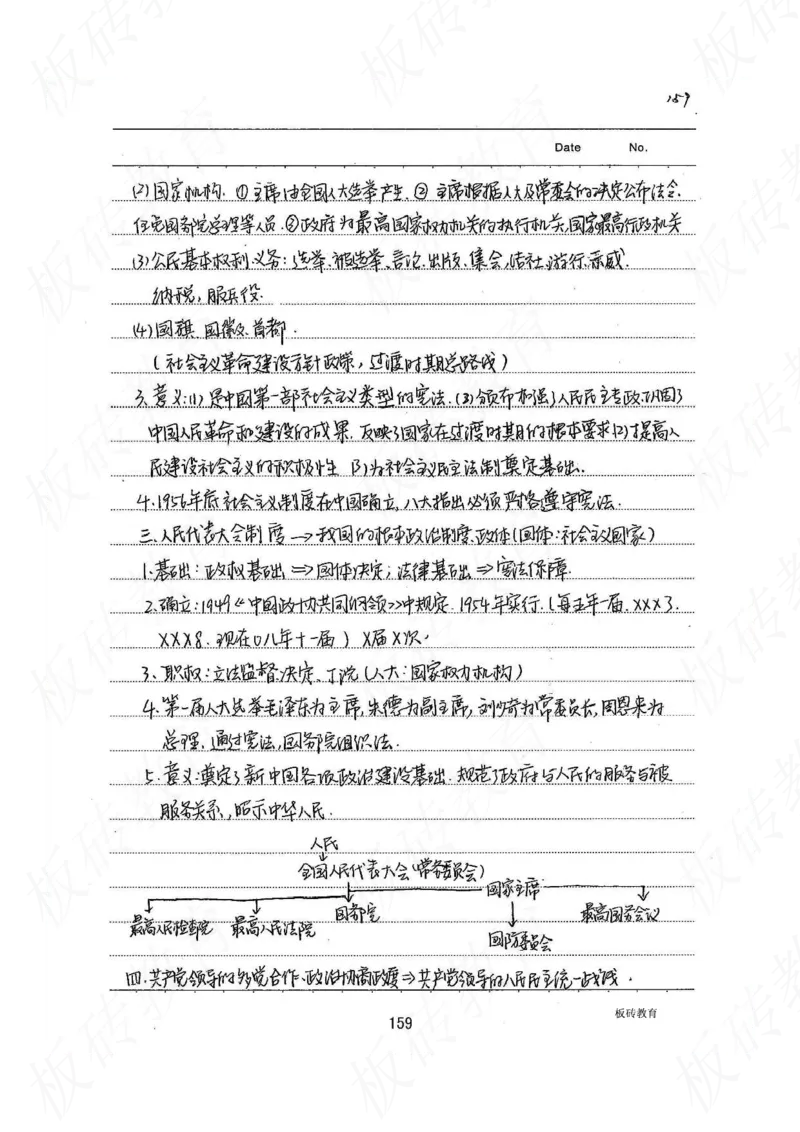 159
Date No.
(2)国家机构. ①主席由全国人大选举产生. ②主席根据人大及常委会的决定公布法令.
任免国务院总理等人员.③政府为最高国家权力机关的执行机关,国家最高行政机关
(3)公民基本权利义务:选举.被选举.言论.出版.集会.结社.游行.示威.
纳税,服兵役.
(4)国旗.国徽.首都.
(社会主义革命建设方针政策,过渡时期总路线)
3.意义:(1)是中国第一部社会主义类型的宪法.(2)颁布加强了人民民主专政,巩固了
中国人民革命和建设的成果.反映了国家在过渡时期的根本要求(2)提高人
民建设社会主义的积极性 (3)为社会主义民主法制奠定基础.
4.1956年底社会主义制度在中国确立,八大指出必须严格遵守宪法.
三.人民代表大会制度→我国的根本政治制度.政体(国体:社会主义国家)
1.基础:政权基础⇒国体决定;法律基础⇒宪法保障
2.确立:1949《中国政协共同纲领》中规定.1954年实行.(每五年一届.XXX3.
XXX8.现在08年十一届) X届X次.
3.职权:立法监督.决定.丁说(人大:国家权力机构)
4.第一届人大选举毛泽东为主席,朱德为副主席,刘少奇为常委员长,周恩来为
总理.通过宪法,国务院组织法.
5.意义:奠定了新中国各项政治建设基础.规范了政府与人民的服务与被
服务关系,昭示中华人民.
人民
全国人民代表大会(常务委员会)
国家主席
最高人民检查院 最高人民法院 国务院 最高国务会议
国防委员会
四.共产党领导的多党合作、政治协商政度⇒共产党领导的人民民主统一战线.
159
板砖教育